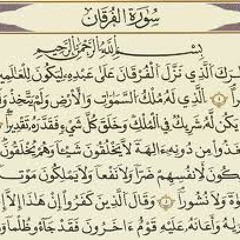 سُورَةُ الفُرْقَان
بِسْمِ اللَّهِ الرَّحْمَٰنِ الرَّحِيمِ
تَبَارَكَ الَّذِي نَزَّلَ الْفُرْقَانَ عَلَىٰ عَبْدِهِ لِيَكُونَ لِلْعَالَمِي
الَّذِي لَهُ مُلْكُ السَّمَاوَاتِ وَالْأَرْضِ وَلَمْ يَتَّخِذْ وَلَ
يَكُن لَّهُ شَرِيكٌ فِي الْمُلْكِ وَخَلَقَ كُلَّ شَيْءٍ فَقَدَّرَهُ تَقْدِيرًا
خَذُوا مِن دُونِهِ آلِهَةً لَّا يَخْلُقُونَ شَيْئًا وَهُمْ يُخْلَقُونَ
لِكُونَ لِأَنفُسِهِمْ ضَرًّا وَلَا نَفْعًا وَلَا يَمْلِكُونَ مَوْتًا
وةً وَلَا نُشُورًا ٣ وَقَالَ الَّذِينَ كَفَرُوا إِنْ هَٰذَا إِلَّا إِ
رَاهُ وَأَعَانَهُ عَلَيْهِ قَوْمٌ آخَرُونَ فَقَدْ جَاءُو ظُلْمًا وَ